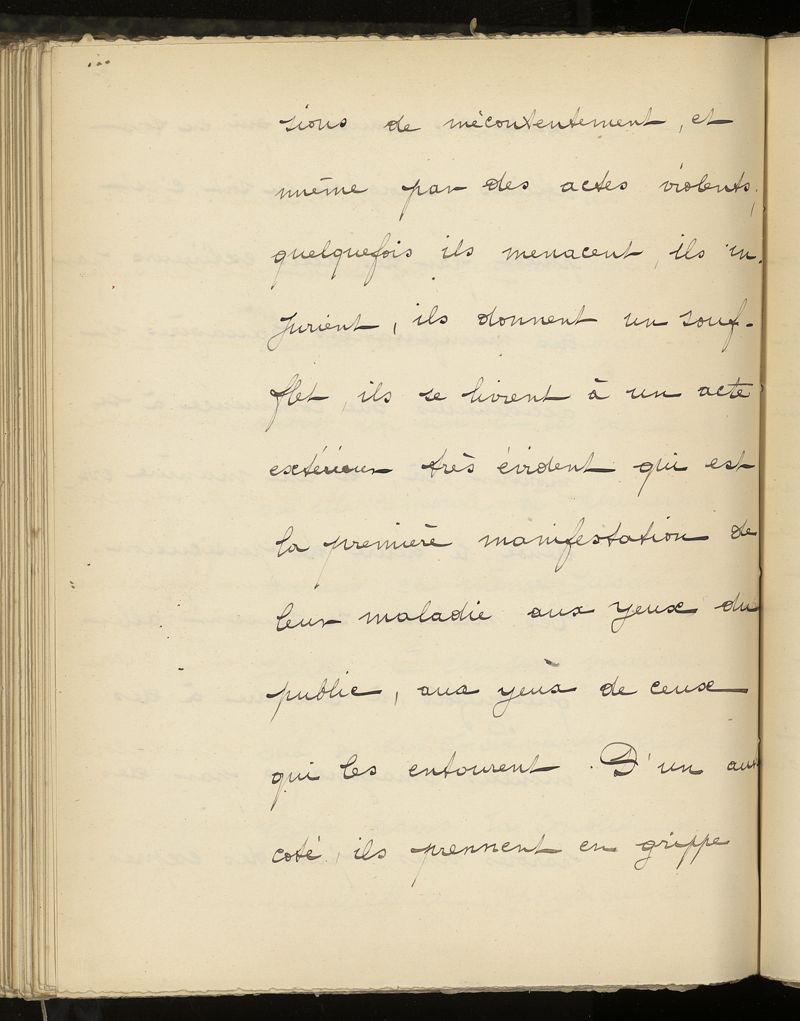 sions de mécontentement, et
même par des actes violents;
quelquefois ils menacent, ils in-
jurient, ils donnent un souf-
flet, ils se livrent à un acte
extérieur très évident qui est
la première manifestation de
leur maladie aux yeux du
public, aux yeux de ceux
qui les entourent. D'un aut
coté, ils prennent en grippe